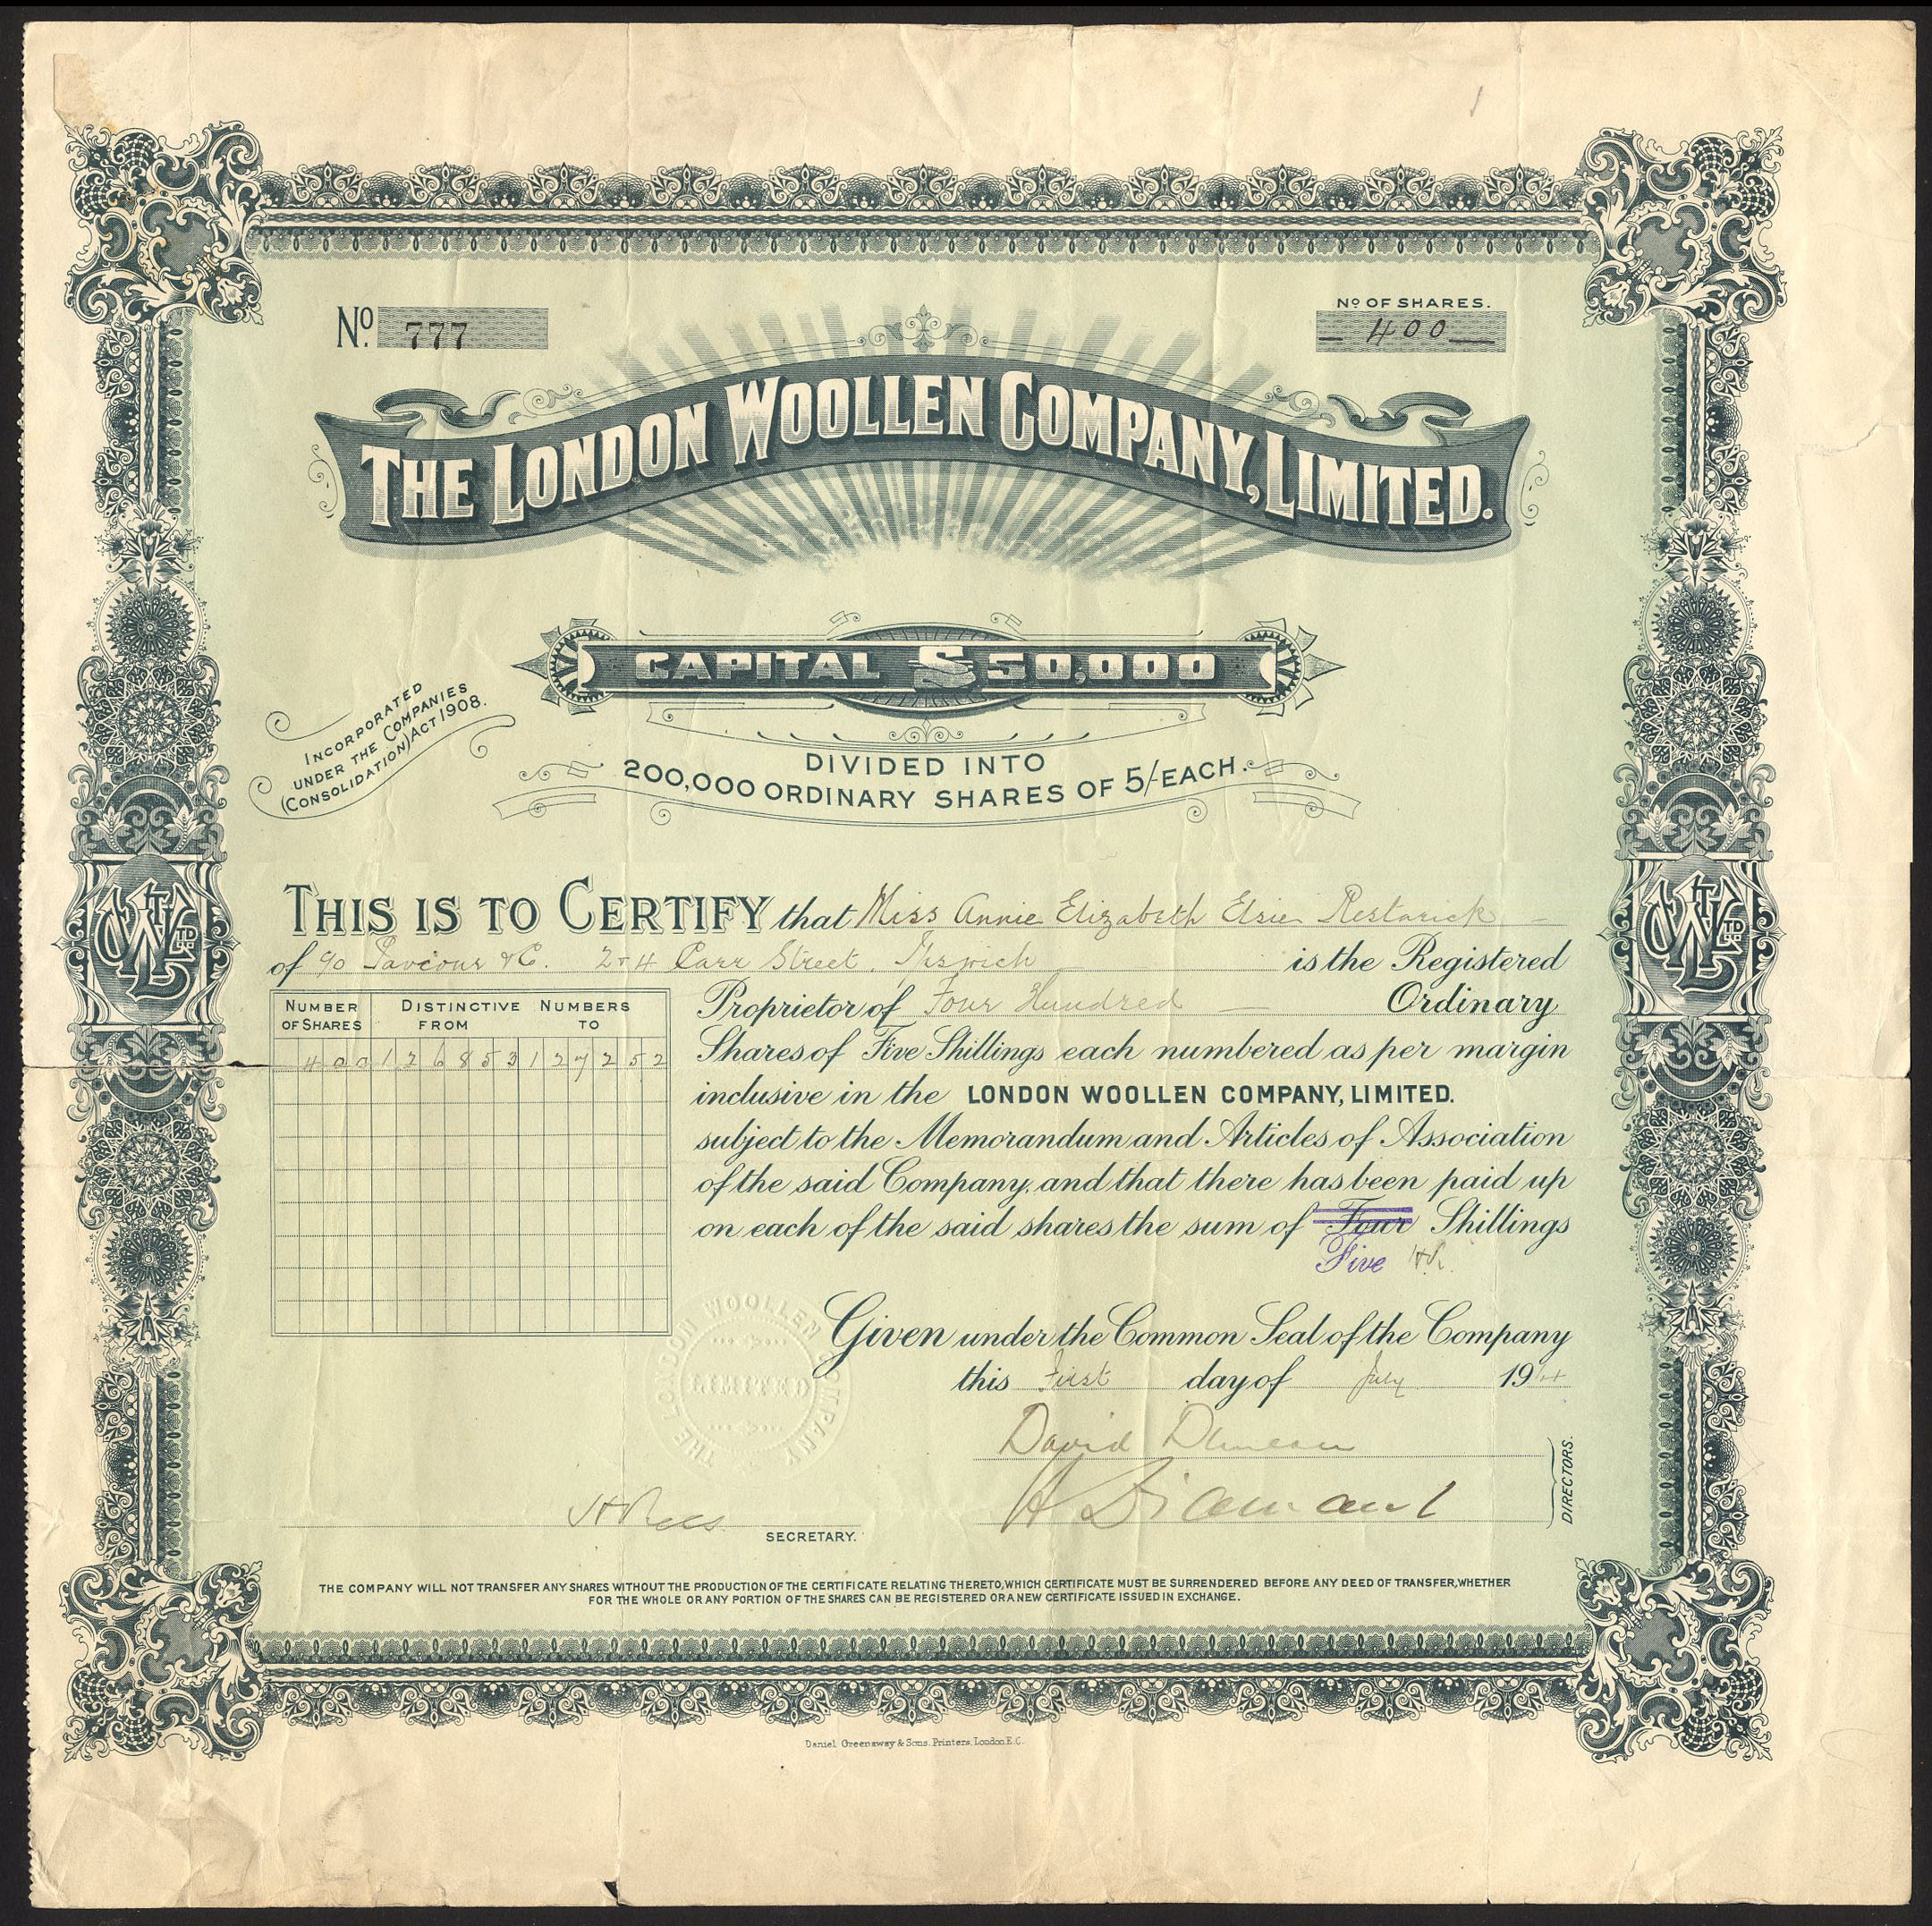 No. 777
No OF SHARES.
400
THE LONDON WOOLLEN COMPANY, LIMITED.
CAPITAL £50,000
INCORPORATED
UNDER THE COMPANIES
(CONSOLIDATION) ACT 1908.
DIVIDED INTO
200,000 ORDINARY SHARES OF 5/- EACH.
THIS IS TO CERTIFY that Miss Annie Elizabeth Elsie Restarick
of c/o Saviour & C. 2 & 4 Carr Street, Ipswich is the Registered
Proprietor of Four Hundred Ordinary
Shares of Five Shillings each numbered as per margin
inclusive in the LONDON WOOLLEN COMPANY, LIMITED.
subject to the Memorandum and Articles of Association
of the said Company, and that there has been paid up
on each of the said shares the sum of Four Shillings
Five HR.
NUMBER OF SHARES
DISTINCTIVE NUMBERS
FROM TO
400 126853 127252
Given under the Common Seal of the Company
this First day of July 1914
THE LONDON WOOLLEN COMPANY
LIMITED
David Duncan
H Diamant
DIRECTORS.
H Rees
SECRETARY.
THE COMPANY WILL NOT TRANSFER ANY SHARES WITHOUT THE PRODUCTION OF THE CERTIFICATE RELATING THERETO, WHICH CERTIFICATE MUST BE SURRENDERED BEFORE ANY DEED OF TRANSFER, WHETHER
FOR THE WHOLE OR ANY PORTION OF THE SHARES CAN BE REGISTERED OR A NEW CERTIFICATE ISSUED IN EXCHANGE.
Daniel Greenaway & Sons, Printers, London E.C.
WL
LTD
WL
LTD